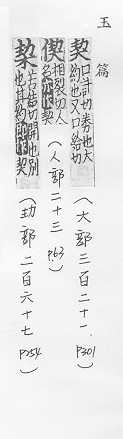 玉篇
契 口計切券也大
約也又口結切
(大部三百二十一 P301)
偰 相裂切人
名亦作契
(人部二十三 P.63)
栔 結切開也別
也其契約作契
(㓞部二百六十七 P254)